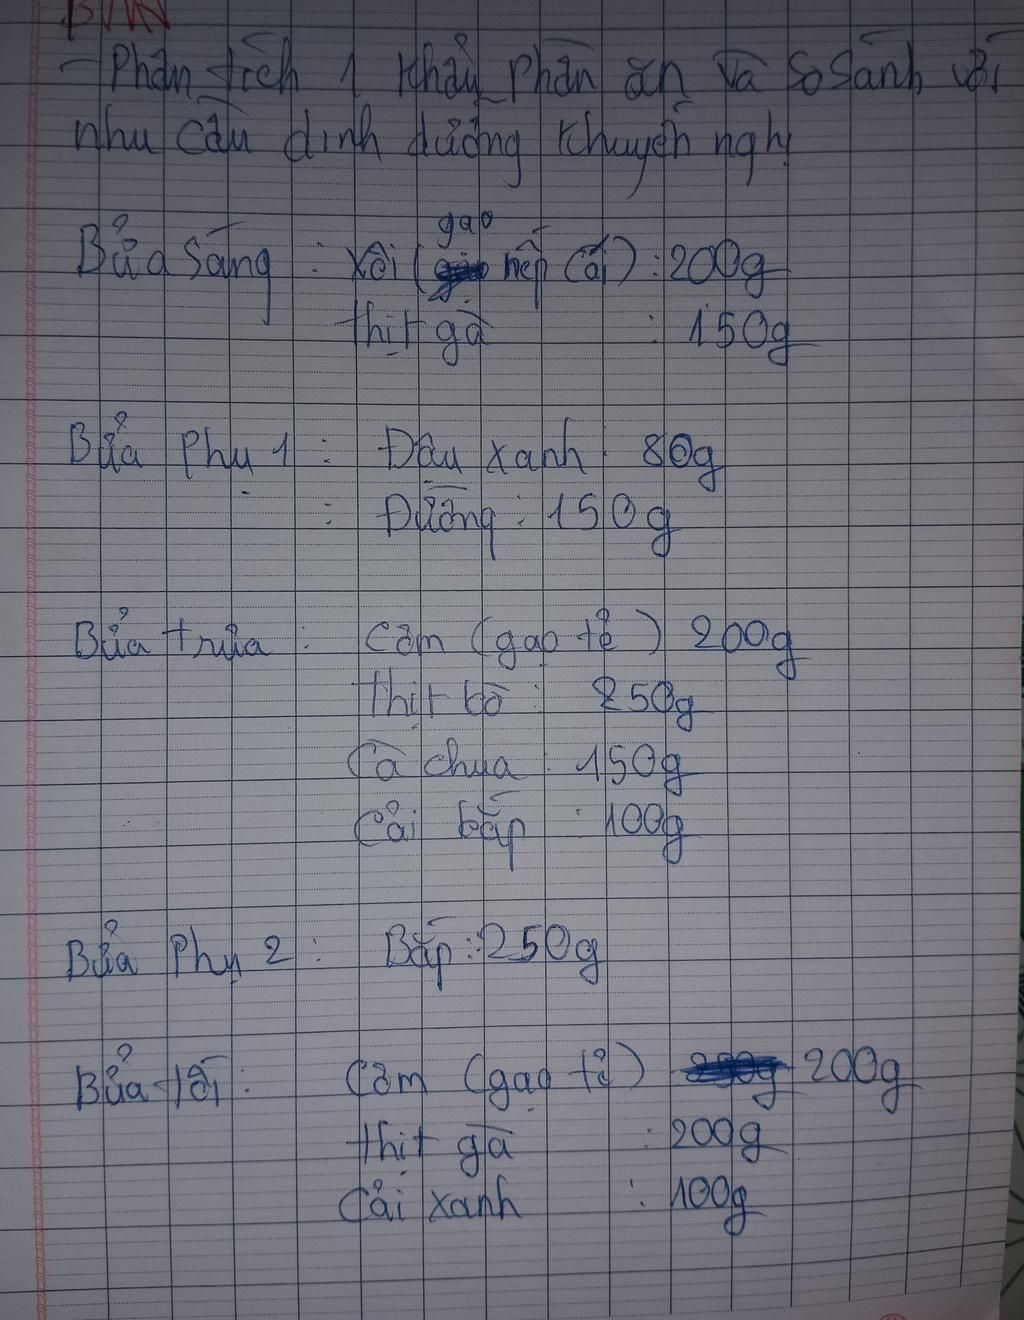 BTVN
- Phân tích 1 khẩu phần ăn và so sánh với
nhu cầu dinh dưỡng khuyến nghị
Bửa sáng : xôi (gạo nếp cái) : 200g
thịt gà : 150g
Bửa phụ 1 : Đậu xanh : 80g
: Đường : 150g
Bửa trưa : Cơm (gạo tẻ) 200g
thịt bò : 250g
Cà chua : 150g
Cải bắp : 100g
Bửa phụ 2 : Bắp : 250g
Bửa tối : Cơm (gạo tẻ) 200g
thịt gà : 200g
Cải xanh : 100g